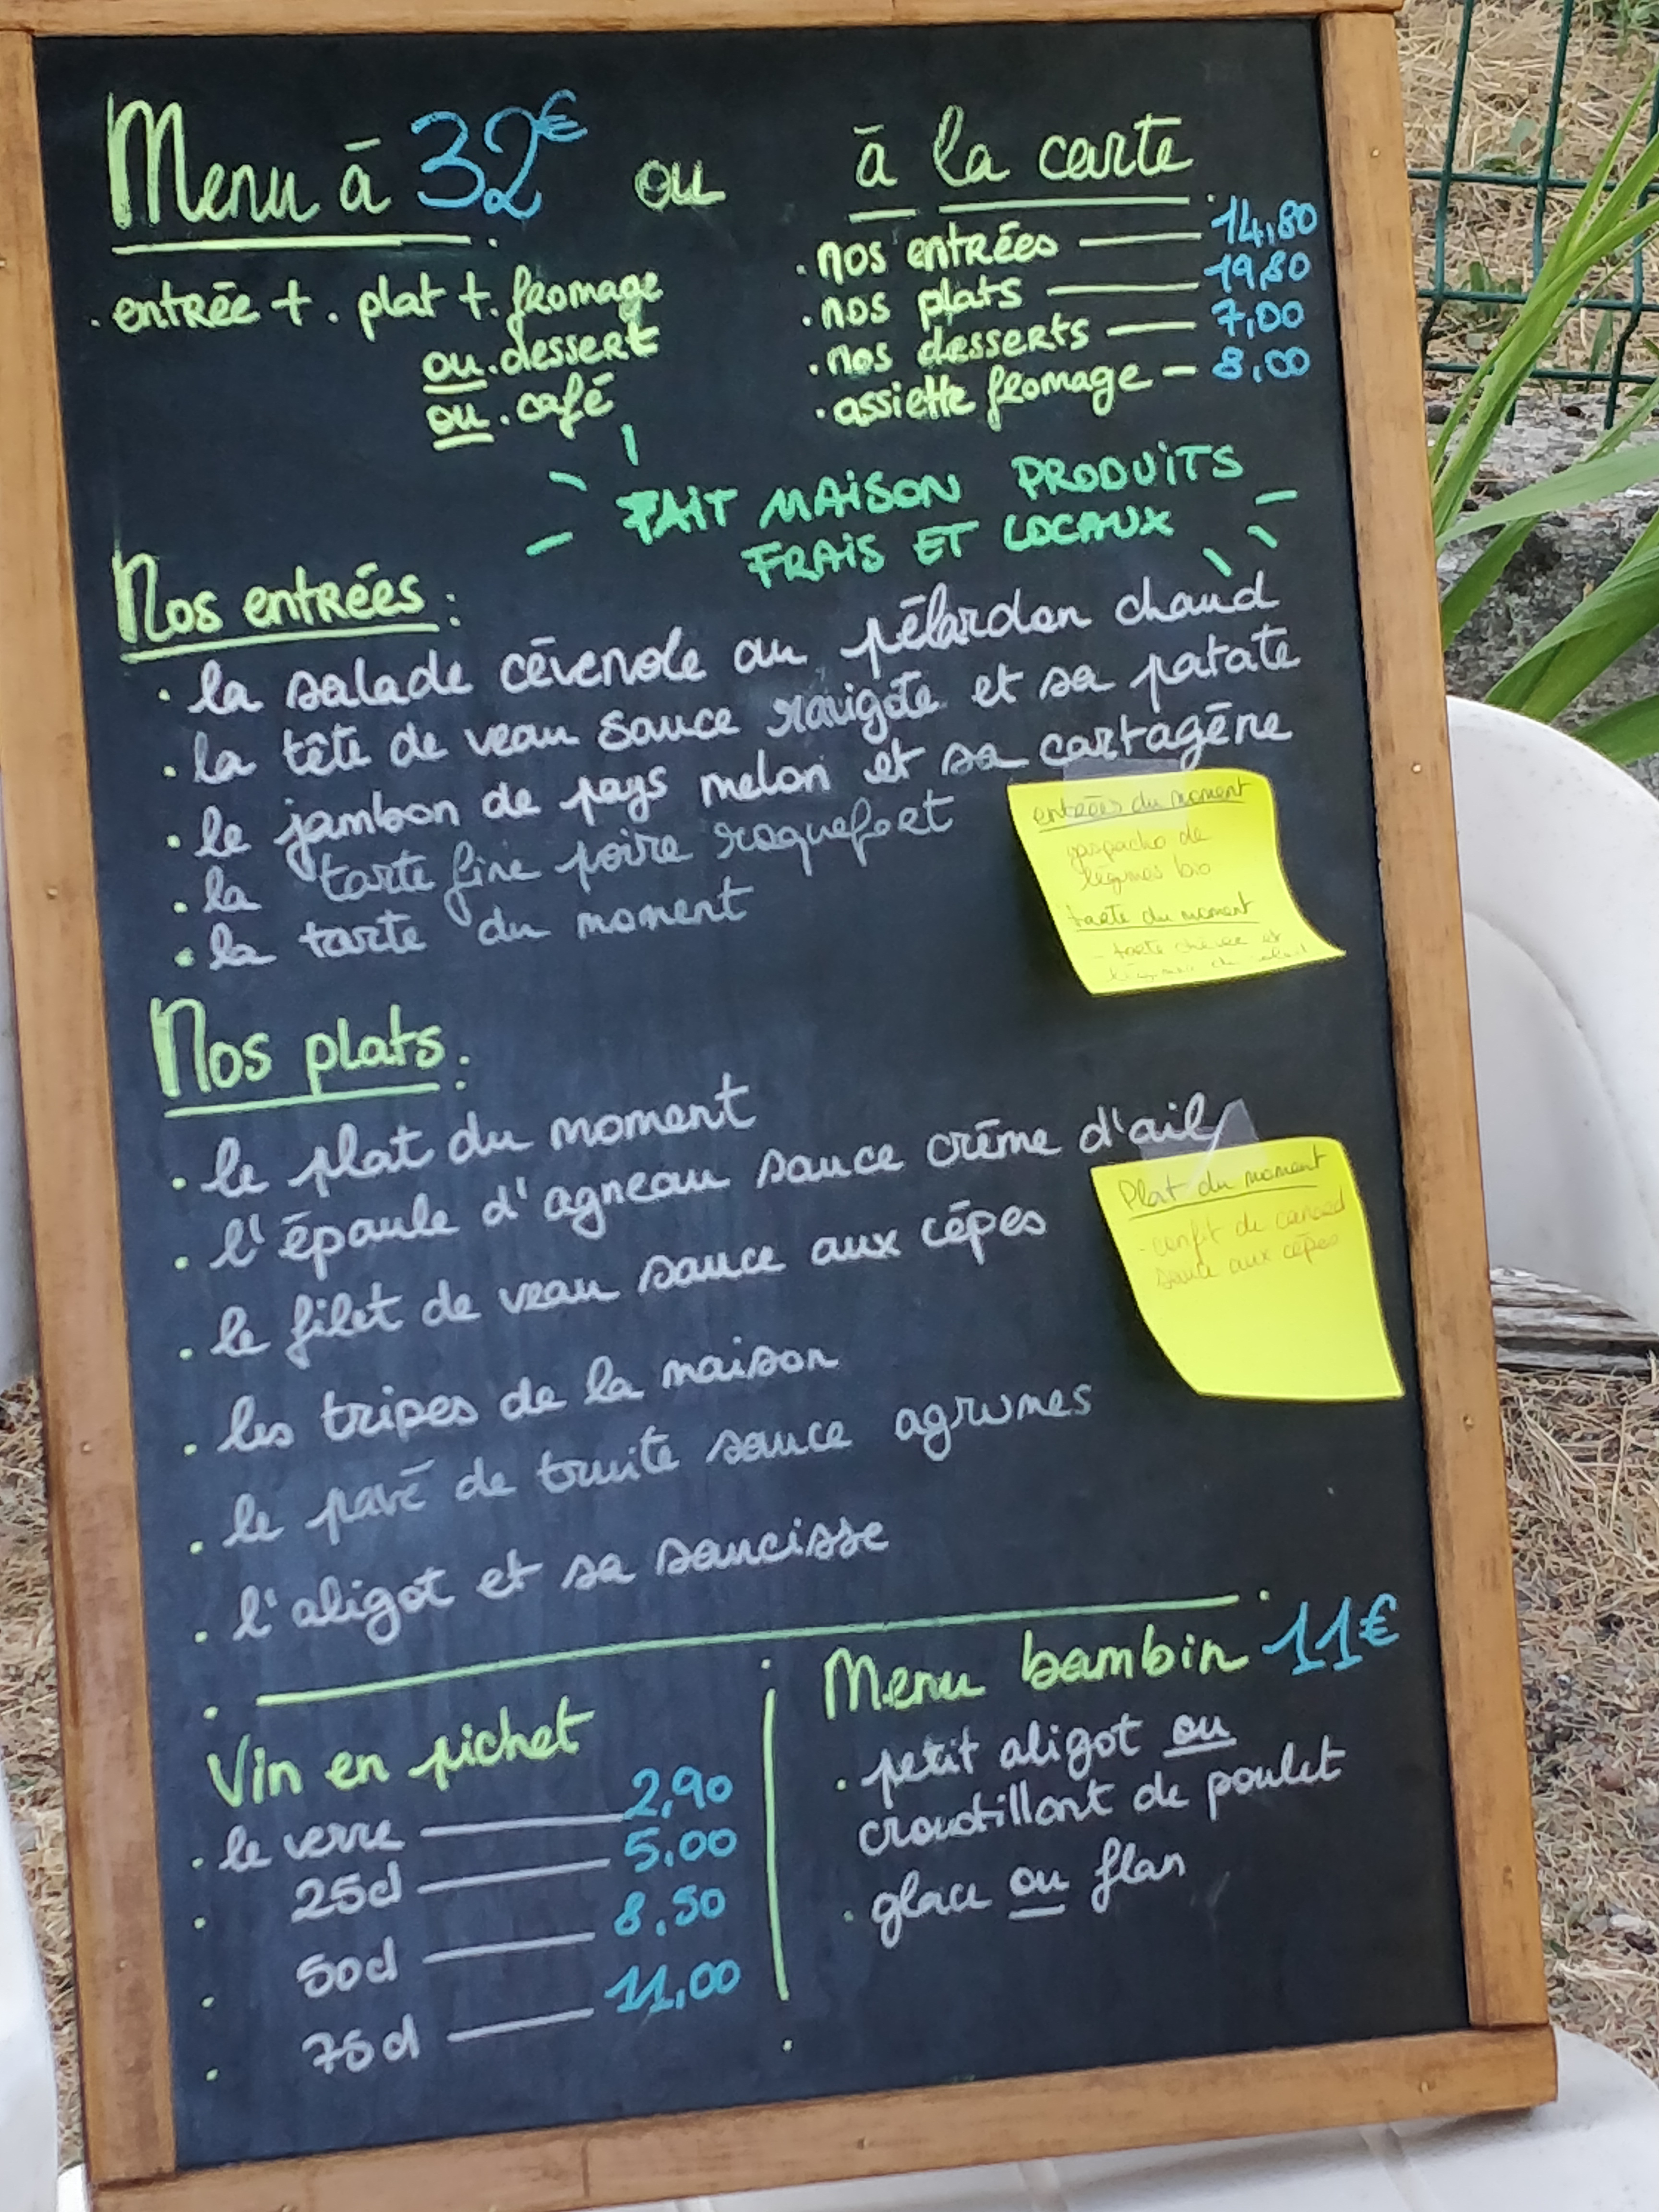 Menu à 32€ ou
. entrée + . plat + . fromage
ou . dessert
ou . café
à la carte
. nos entrées — 14,80
. nos plats — 19,80
. nos desserts — 7,00
. assiette fromage — 8,00
FAIT MAISON PRODUITS
FRAIS ET LOCAUX
Nos entrées :
. la salade cévenole au pélardon chaud
. la tête de veau sauce ravigote et sa patate
. le jambon de pays melon et sa cartagène
. la tarte fine poire roquefort
. la tarte du moment
entrées du moment
gaspacho de
légumes bio
tarte du moment
- tarte chèvre et
légumes du soleil
Nos plats :
. le plat du moment
. l'épaule d'agneau sauce crème d'ail
. le filet de veau sauce aux cèpes
. les tripes de la maison
. le pavé de truite sauce agrumes
. l'aligot et sa saucisse
Plat du moment
- confit de canard
sauce aux cèpes
Vin en pichet
. le verre — 2,90
. 25cl — 5,00
. 50cl — 8,50
. 75cl — 11,00
Menu bambin 11€
. petit aligot ou
croustillant de poulet
. glace ou flan